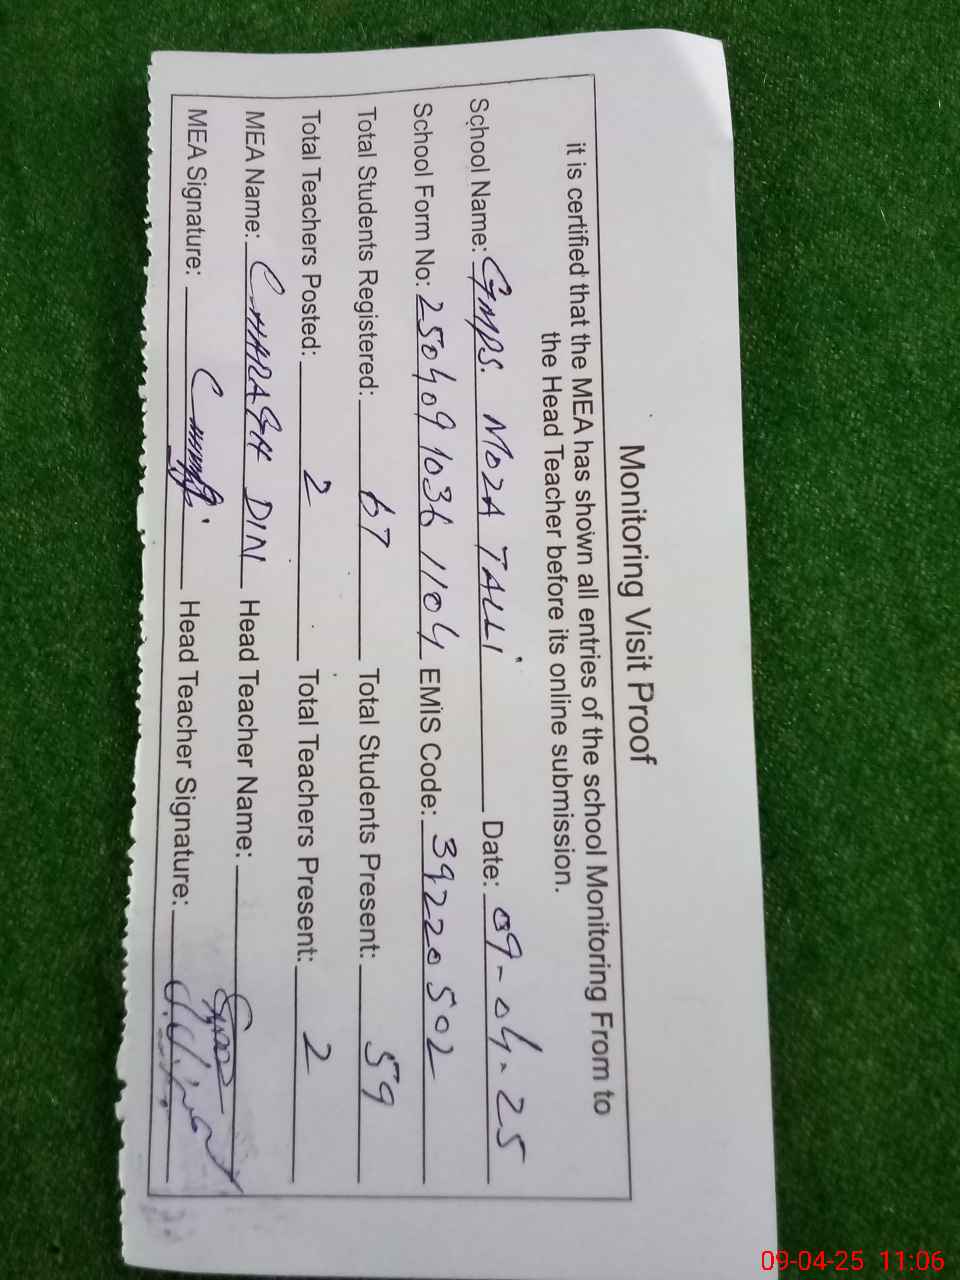 Monitoring Visit Proof
it is certified that the MEA has shown all entries of the school Monitoring From to
the Head Teacher before its online submission.
School Name: GMPS. MOZA TALLI Date: 09-04-25
School Form No: 2504091036 1104 EMIS Code: 39220502
Total Students Registered: 67 Total Students Present: 59
Total Teachers Posted: 2 Total Teachers Present: 2
MEA Name: CHHRAGH DIN Head Teacher Name:
MEA Signature: Head Teacher Signature:
09-04-25 11:06